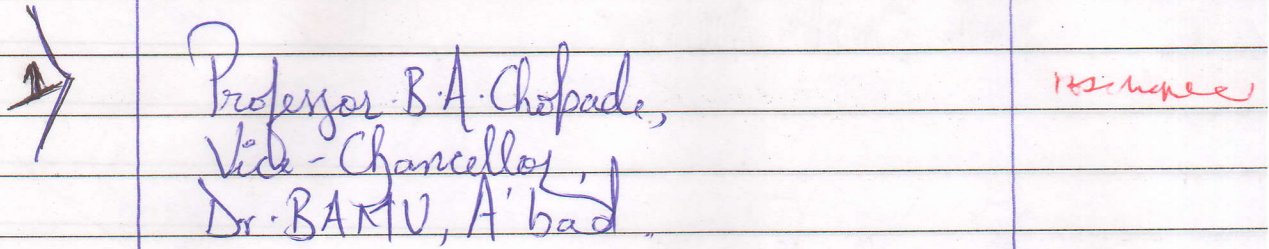 1) Professor B.A. Chopade,
Vice-Chancellor,
Dr. BAMU, A'bad.